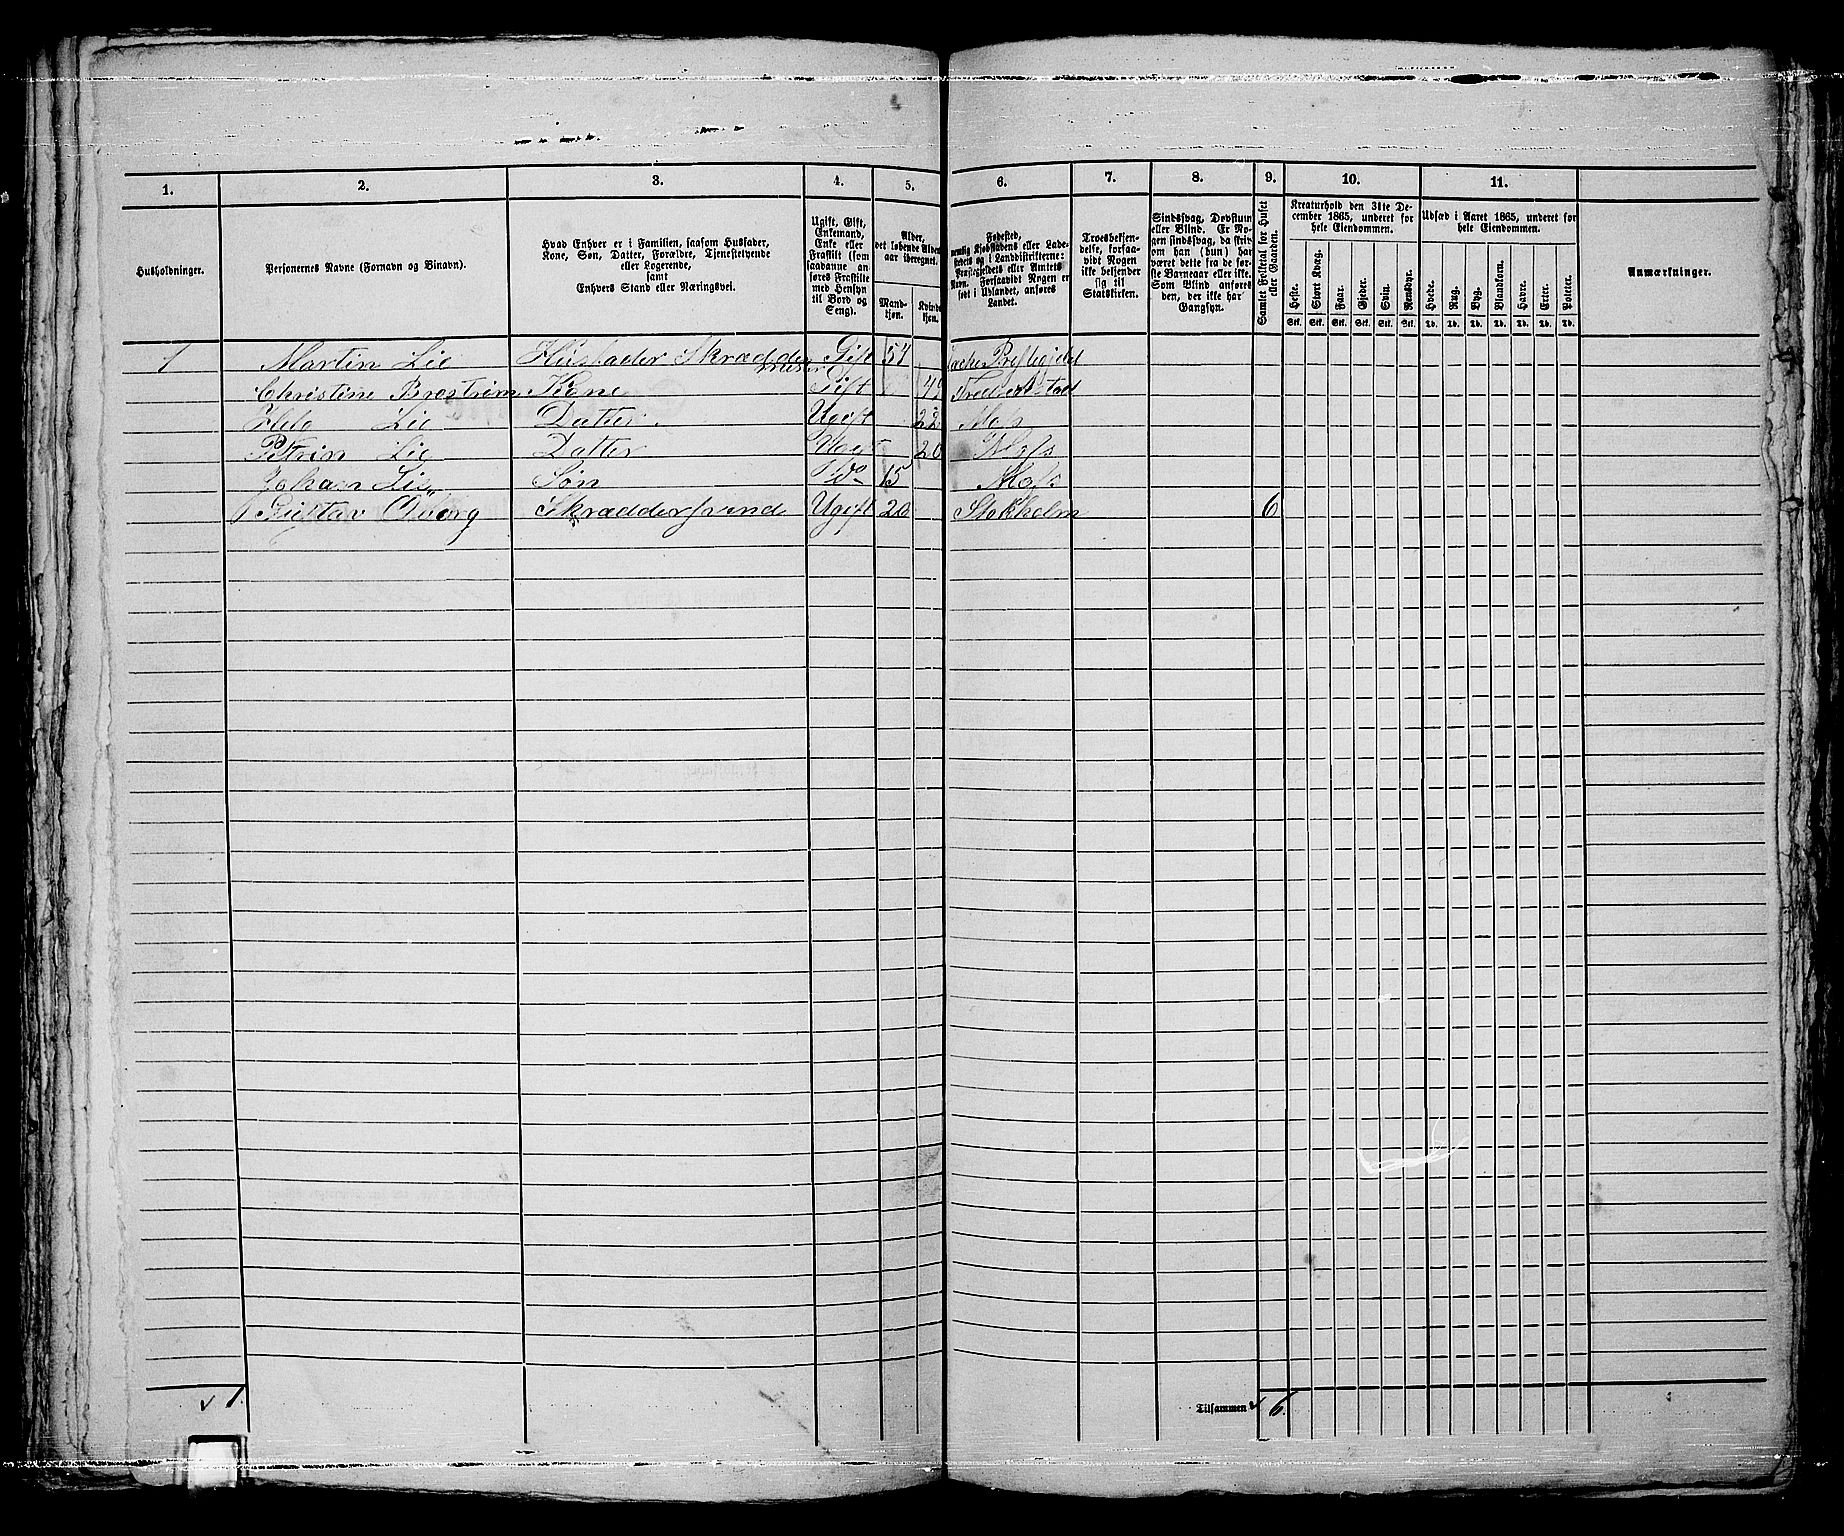 1. 2. 3. 4. 5. 6. 7. 8. 9. 10. 11.
Husholdninger.
Personernes Navne (Fornavn og Binavn).
Hvad Enhver er i Familien, saasom Husfader,
Kone, Søn, Datter, Forældre, Tjenestetyende
eller Logerende,
samt
Enhvers Stand eller Næringsvei.
Ugift, Gift,
Enkemand,
Enke eller
Fraskilt (som
saadanne an-
føres Fraskilte
med Hensyn
til Bord og
Seng).
Alder,
det løbende Alders-
aar iberegnet.
Mand-
kjøn.
Kvinde-
kjøn.
Fødested,
nemlig Kjøbstadens eller Lade-
stedets og i Landdistrikterne:
Præstegjeldets eller Amtets
Navn. Forsaavidt Nogen er
født i Udlandet, anføres
Landet.
Troesbekjen-
delse, forsaa-
vidt Nogen
ikke bekjender
sig til
Statskirken.
Sindssvag, Døvstum
eller Blind. Er No-
gen sindssvag, da skriv
om han (hun) har
været dette fra de før-
ste Barneaar eller ikke.
Som Blind anføres
den, der ikke har
Gangsyn.
Samlet Folketal for Huset
eller Gaarden.
Kreaturhold den 31te De-
cember 1865, underet for
hele Eiendommen.
Heste. Stort Kvæg. Faar. Gjeder. Svin. Rensdyr.
Stk. Stk. Stk. Stk. Stk. Stk.
Udsæd i Aaret 1865, underet for
hele Eiendommen.
Hvede. Rug. Byg. Blandkorn. Havre. Erter. Poteter.
Td. Td. Td. Td. Td. Td. Td.
Anmærkninger.
1 Martin Lie Husfader Skrædder Gift 54 Præstegjeld
mester
Christine Brostrøm Kone Gift Fredrikstad
Lie Datter Ugift 22 Moss
Petrin Lie Datter Ugift 20 Moss
Johan Lie Søn Do 15 Moss
Gustav Öberg Skræddersvend Ugift 20 Stokholm 6
1. Tilsammen 6.